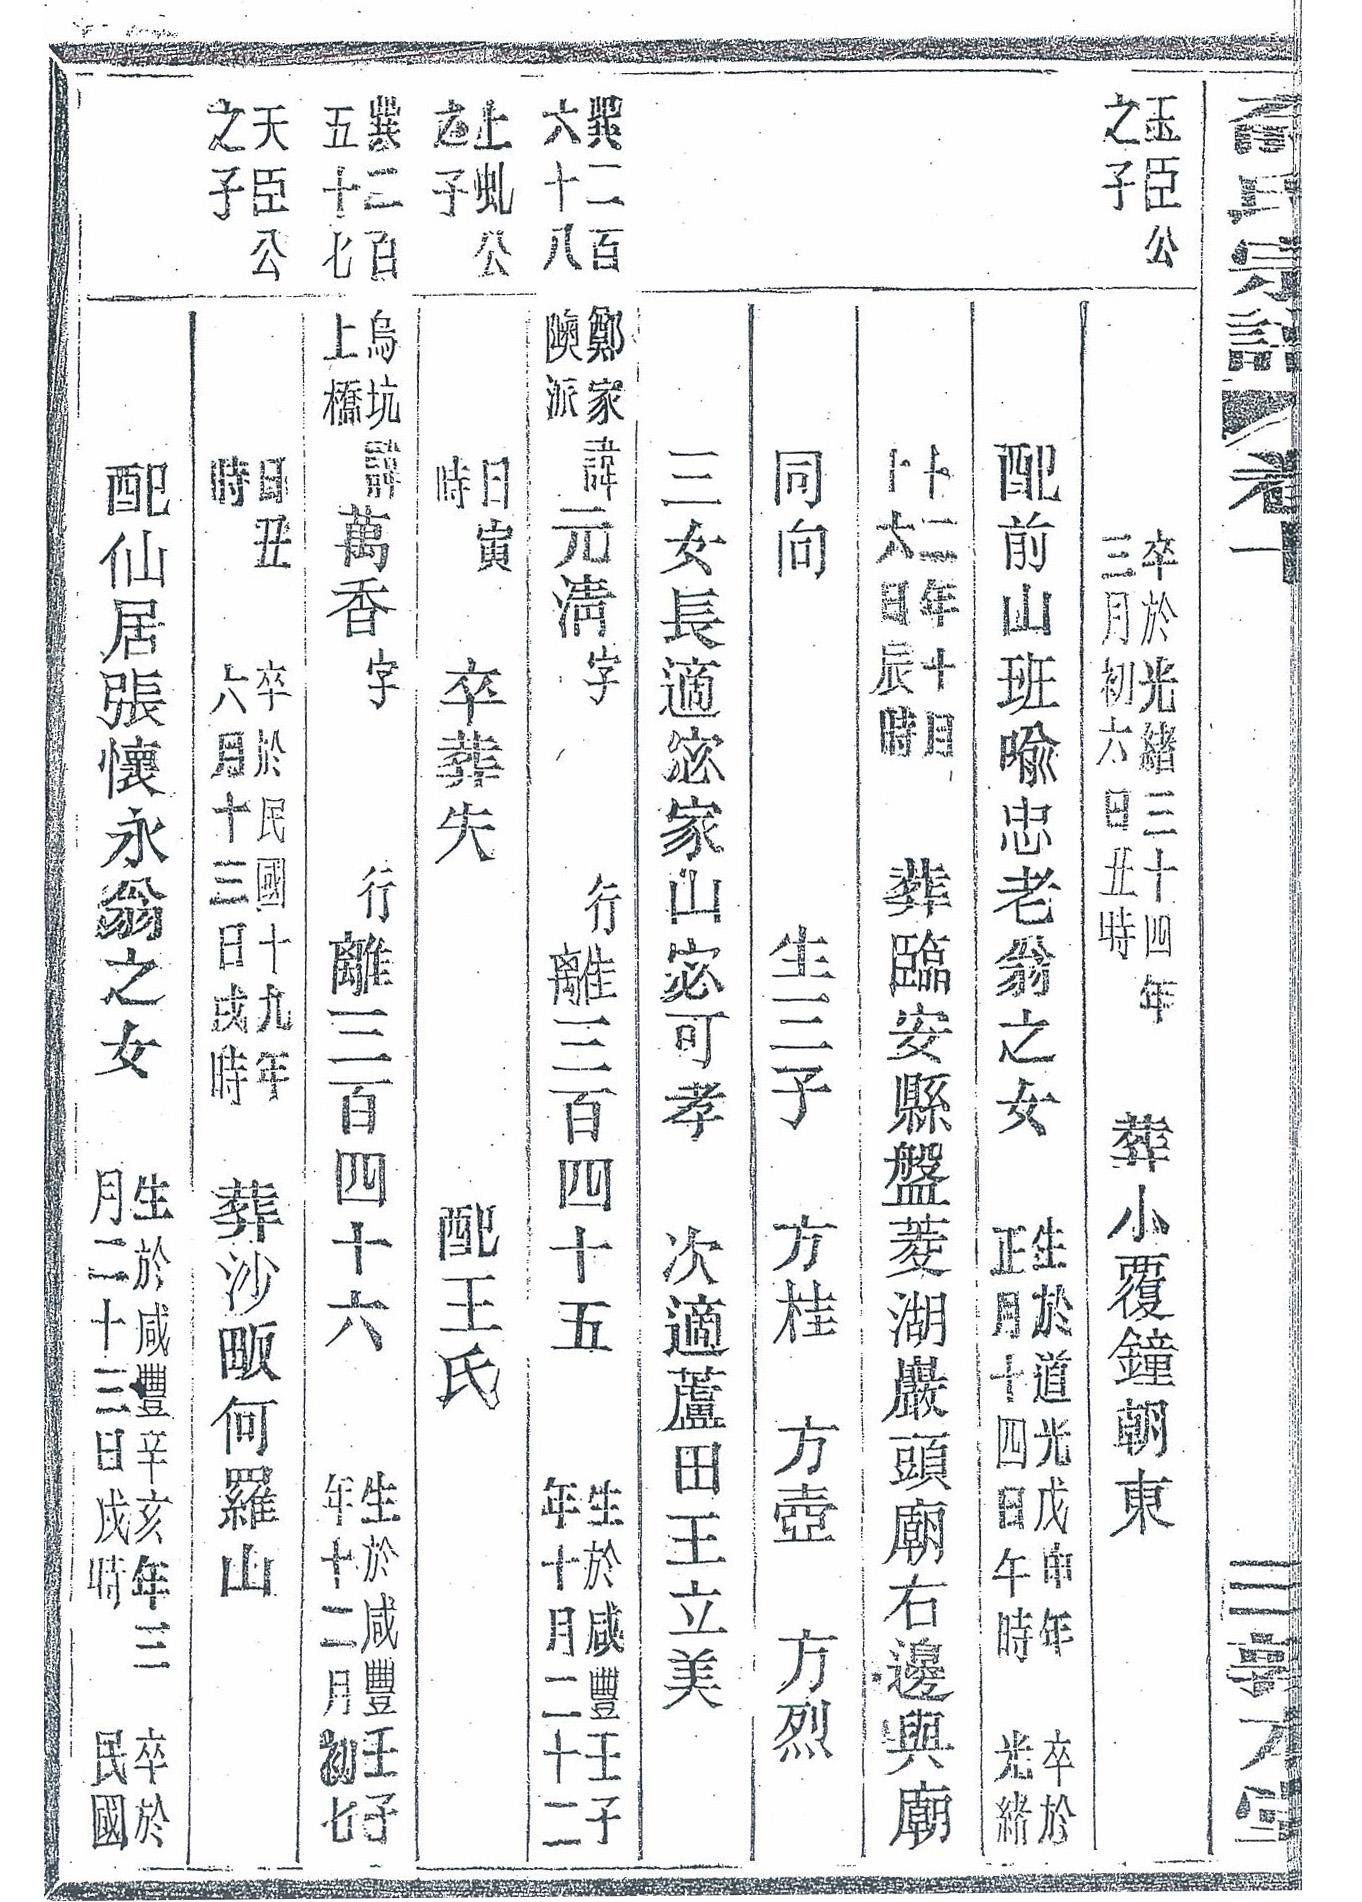 氏宗譜 卷一
玉臣公之子
卒於光緒三十四年三月初六日丑時 葬小覆鐘朝東
配前山班喻忠老翁之女 生於道光戊申年正月十四日午時 卒於光緒
十二年十月十六日辰時 葬臨安縣盤菱湖嚴頭廟右邊與廟
同向 生三子 方桂 方壺 方烈
三女長適宓家山宓可孝 次適蘆田王立美
巽二百六十八 鄭家陝派 諱元淸字 行離三百四十五 生於咸豐壬子年十月二十二
上虬公之子 日寅時 卒葬失 配王氏
巽二百五十七 烏坑上橋 諱萬香字 行離三百四十六 生於咸豐壬子年十二月初七
天臣公之子 日丑時 卒於民國十九年六月十三日戌時 葬沙畈何羅山
配仙居張懷永翁之女 生於咸豐辛亥年三月二十三日戌時 卒於民國